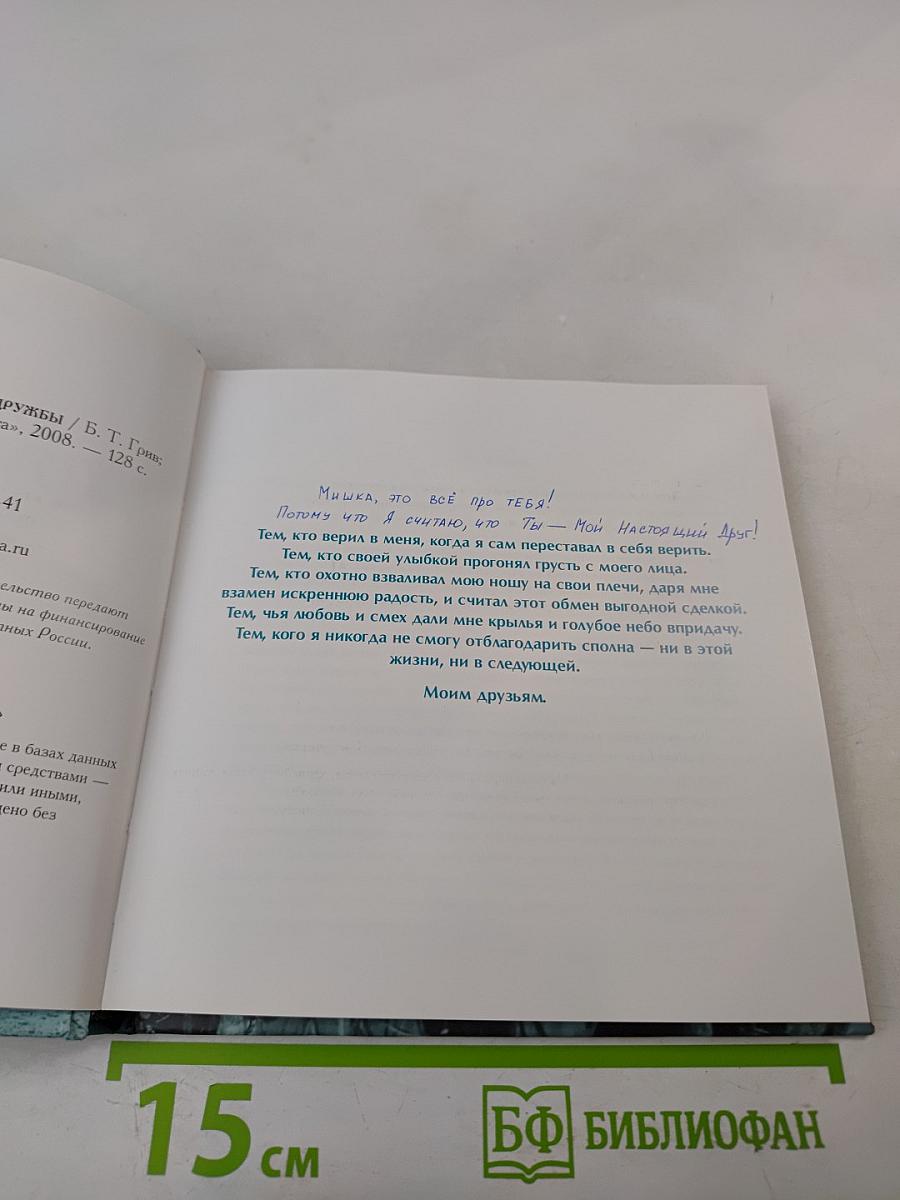 ДРУЖБЫ / Б. Т. Грив;
2008. — 128 с.
41
a.ru
передают
на финансирование
России.
е в базах данных
средствами —
или иными,
без
Мишка, это всё про тебя!
Потому что Я считаю, что Ты — Мой Настоящий Друг!
Тем, кто верил в меня, когда я сам переставал в себя верить.
Тем, кто своей улыбкой прогонял грусть с моего лица.
Тем, кто охотно взваливал мою ношу на свои плечи, даря мне
взамен искреннюю радость, и считал этот обмен выгодной сделкой.
Тем, чья любовь и смех дали мне крылья и голубое небо впридачу.
Тем, кого я никогда не смогу отблагодарить сполна — ни в этой
жизни, ни в следующей.
Моим друзьям.
15 см
БФ БИБЛИОФАН